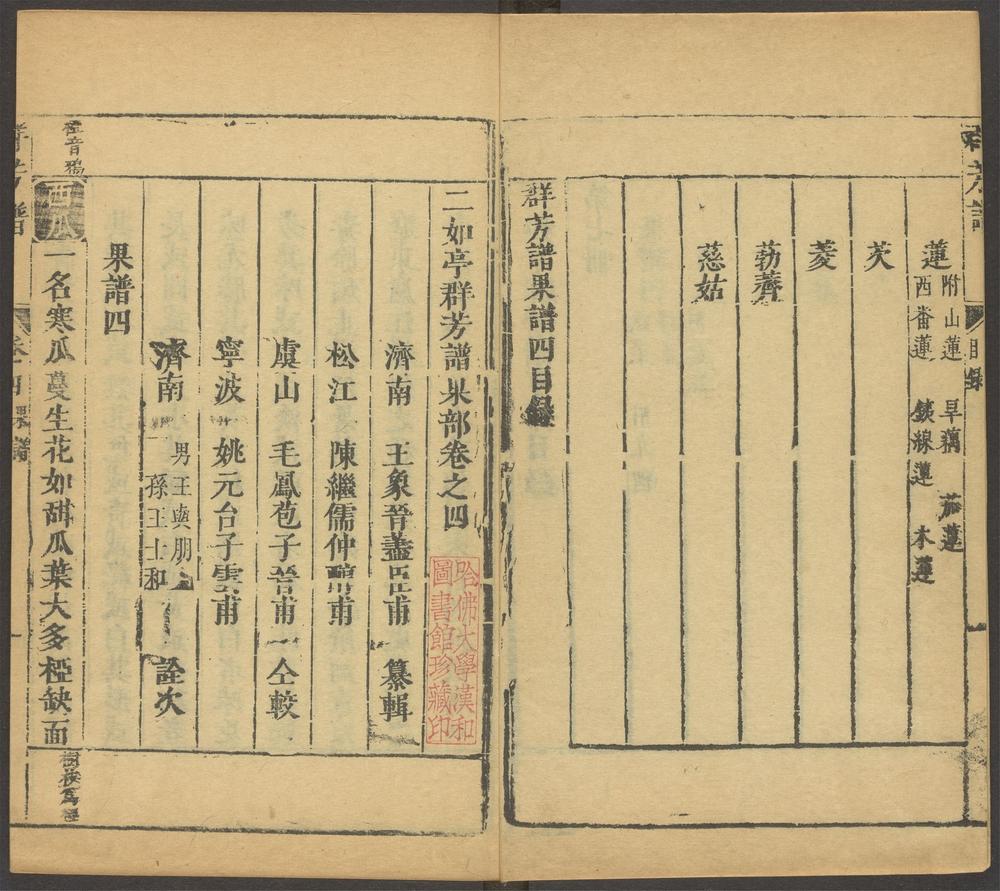 蓮 附山蓮 旱藕 茄蓮
西番蓮 鐵線蓮 木蓮
芡
菱
葧薺
慈姑
群芳譜果譜四目録
二如亭群芳譜果部卷之四
濟南 王象晉藎臣甫 纂輯
松江 陳繼儒仲醇甫
虞山 毛鳳苞子晉甫 仝較
寧波 姚元台子雲甫
濟南 男王與朋
孫王士和 詮次
果譜四
西瓜 一名寒瓜蔓生花如甜瓜葉大多椏缺面
椏音鴉
樹枝爲椏
哈佛大學漢和
圖書館珍藏印